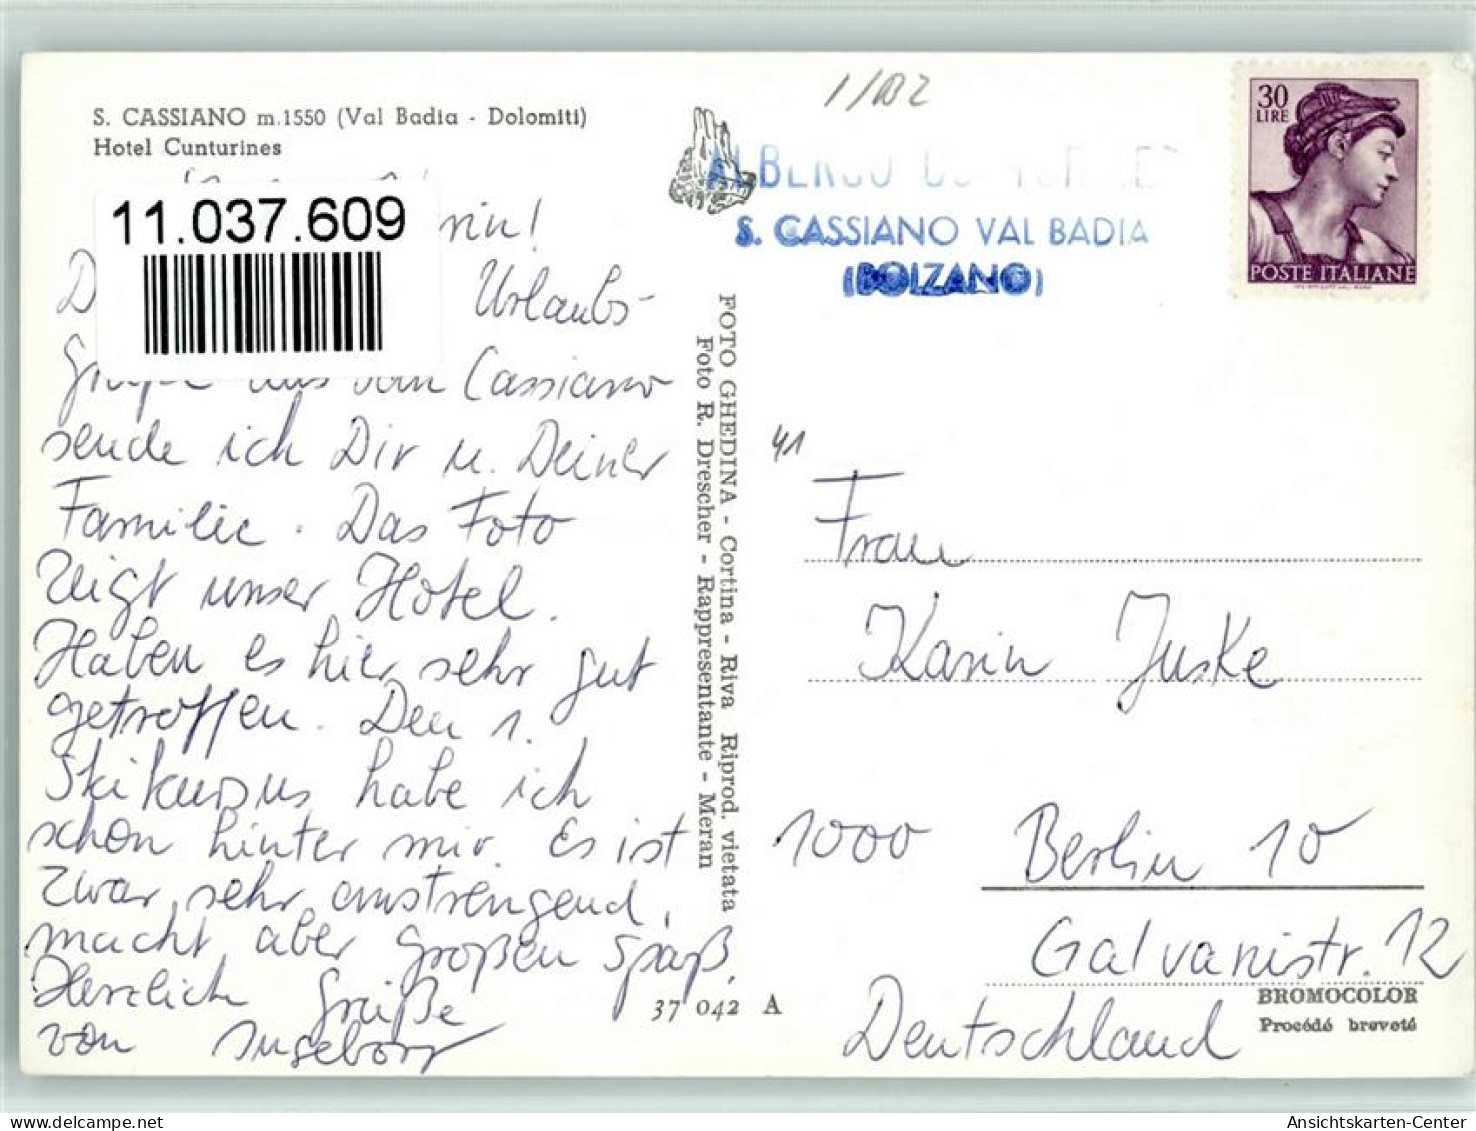 S. CASSIANO m. 1550 (Val Badia - Dolomiti)
Hotel Cunturines
11.037.609
rin!
Urlaubs-
aus Cassiano
sende ich Dir u. Deiner
Familie. Das Foto
zeigt unser Hotel.
Haben es hier sehr gut
getroffen. Den 1.
Skikursus habe ich
schon hinter mir. Es ist
zwar sehr anstrengend,
macht aber großen Spaß.
Herzlich Grüße
von Ingeborg
FOTO GHEDINA - Cortina - Riva Riprod. vietata
Foto R. Drescher - Rappresentante - Meran
37 042 A
1/102
ALBERGO
S. CASSIANO VAL BADIA
(BOLZANO)
30
LIRE
POSTE ITALIANE
41
Frau
Karin Juske
1000 Berlin 10
Galvanistr. 12
Deutschland
BROMOCOLOR
Procédé breveté
Ansichtskarten-Center